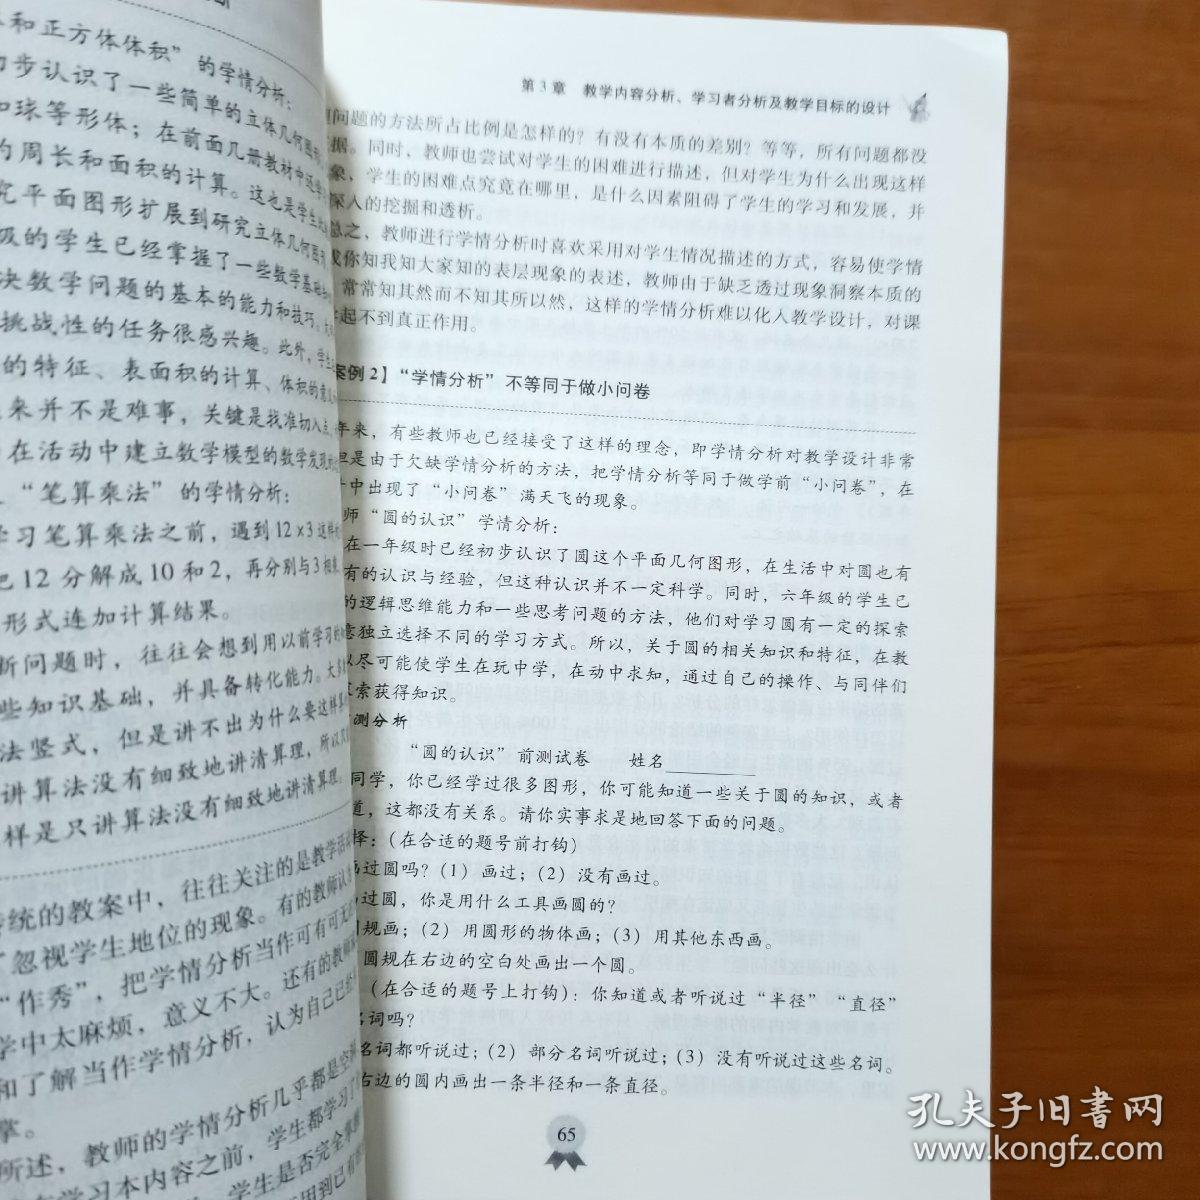 和正方体体积”的学情分析：
步认识了一些简单的立体几何图
和球等形体；在前面几册教材中还学
的周长和面积的计算。这也是学生
究平面图形扩展到研究立体几何图
级的学生已经掌握了一些数学基础
决数学问题的基本的能力和技巧。
挑战性的任务很感兴趣。此外，学生
的特征、表面积的计算、体积的意
来并不是难事，关键是找准切入点
在活动中建立数学模型的数学发现
“笔算乘法”的学情分析：
学习笔算乘法之前，遇到12×3这样
把12分解成10和2，再分别与3相乘
形式连加计算结果。
析问题时，往往会想到用以前学习
些知识基础，并具备转化能力。大多
法竖式，但是讲不出为什么要这样
讲算法没有细致地讲清算理，所以
样是只讲算法没有细致地讲清算理。
传统的教案中，往往关注的是教学活
了忽视学生地位的现象。有的教师认
“作秀”，把学情分析当作可有可无
学中太麻烦，意义不大。还有的教师
和了解当作学情分析，认为自己已经
掌。
所述，教师的学情分析几乎都是空
在学习本内容之前，学生都学习了
学生是否完全掌握
第3章 教学内容分析、学习者分析及教学目标的设计
问题的方法所占比例是怎样的？有没有本质的差别？等等，所有问题都没
据。同时，教师也尝试对学生的困难进行描述，但对学生为什么出现这样
象，学生的困难点究竟在哪里，是什么因素阻碍了学生的学习和发展，并
深入的挖掘和透析。
总之，教师进行学情分析时喜欢采用对学生情况描述的方式，容易使学情
成你知我知大家知的表层现象的表述，教师由于缺乏透过现象洞察本质的
常常知其然而不知其所以然，这样的学情分析难以化入教学设计，对课
起不到真正作用。
案例2】“学情分析”不等同于做小问卷
年来，有些教师也已经接受了这样的理念，即学情分析对教学设计非常
但是由于欠缺学情分析的方法，把学情分析等同于做学前“小问卷”，在
中出现了“小问卷”满天飞的现象。
师“圆的认识”学情分析：
在一年级时已经初步认识了圆这个平面几何图形，在生活中对圆也有
有的认识与经验，但这种认识并不一定科学。同时，六年级的学生已
的逻辑思维能力和一些思考问题的方法，他们对学习圆有一定的探索
意独立选择不同的学习方式。所以，关于圆的相关知识和特征，在教
以尽可能使学生在玩中学，在动中求知，通过自己的操作、与同伴们
索获得知识。
测分析
“圆的认识”前测试卷 姓名
同学，你已经学过很多图形，你可能知道一些关于圆的知识，或者
道，这都没有关系。请你实事求是地回答下面的问题。
择：（在合适的题号前打钩）
画过圆吗？（1）画过；（2）没有画过。
过圆，你是用什么工具画圆的？
规画；（2）用圆形的物体画；（3）用其他东西画。
圆规在右边的空白处画出一个圆。
（在合适的题号上打钩）：你知道或者听说过“半径”“直径”
名词吗？
名词都听说过；（2）部分名词听说过；（3）没有听说过这些名词。
右边的圆内画出一条半径和一条直径。
65
孔夫子旧书网
www.kongfz.com